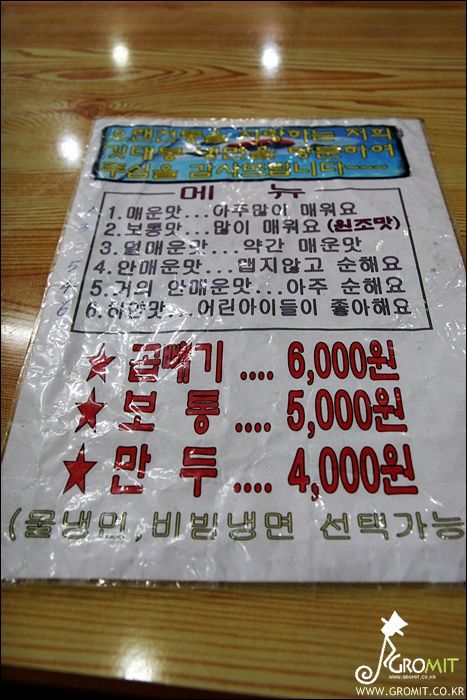 오랜전통을 자랑하는 저희
깃대봉 냉면을 방문하여
주심을 감사드립니다~~~
메 뉴
1.매운맛...아주많이 매워요
2.보통맛...많이 매워요(원조맛)
3.덜매운맛... 약간 매운맛
4.안매운맛...맵지않고 순해요
5.거의 안매운맛...아주 순해요
6.하얀맛...어린아이들이 좋아해요
★ 곱빼기 .... 6,000원
★ 보 통 .... 5,000원
★ 만 두 .... 4,000원
(물냉면,비빔냉면 선택가능
GROMIT
WWW.GROMIT.CO.KR
WWW.GROMIT.CO.KR